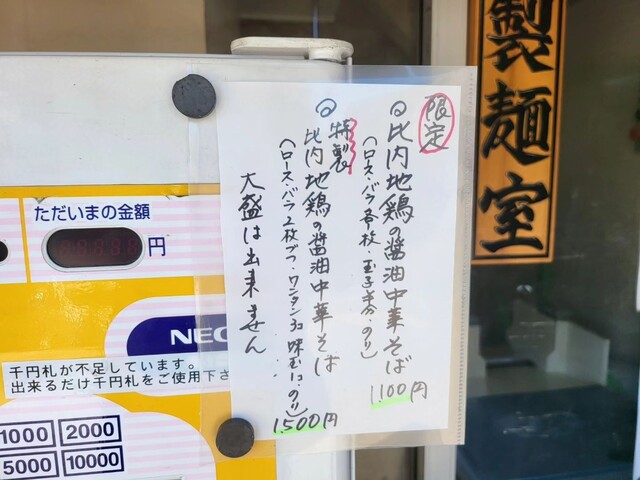 限定
◎比内地鶏の醤油中華そば
(ロース、バラ各1枚・玉子半分・のり)
1,100円
◎特製
比内地鶏の醤油中華そば
(ロース、バラ2枚ヅヅ・ワンタン3コ・味玉1コ・のり)
1,500円
大盛は出来ません
製麺室
ただいまの金額
円
NEC
千円札が不足しています。
出来るだけ千円札をご使用下さ
1000
2000
5000
10000